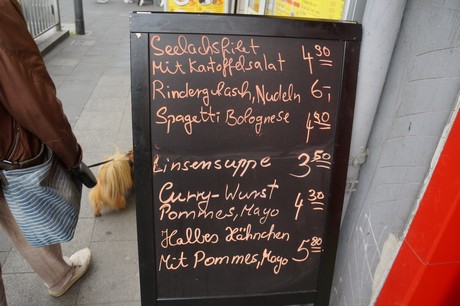 Seelachsfilet
Mit Kartoffelsalat 4 90
Rindergulasch, Nudeln 6,-
Spagetti Bolognese 4 90
Linsensuppe 3 50
Curry-Wurst
Pommes, Mayo 4 30
Halbes Hähnchen
Mit Pommes, Mayo 5 80